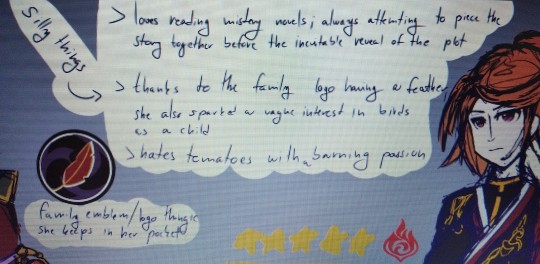 Silly things
> loves reading mistery novels; always attemting to piece the
story together before the inevitable reveal of the plot
> thanks to the family logo having a feather,
she also sparked a vague interest in birds
as a child
> hates tomatoes with a burning passion
family emblem/logo thingie
she keeps in her pocket